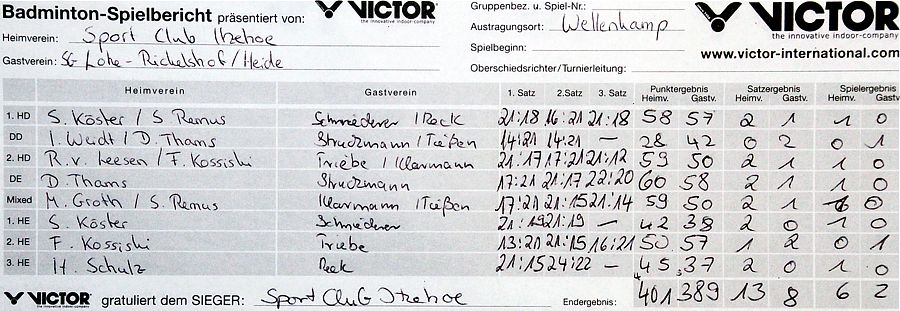 Badminton-Spielbericht präsentiert von: VICTOR the innovative indoor-company
Gruppenbez. u. Spiel-Nr.:
VICTOR the innovative indoor-company
Heimverein: Sport Club Itzehoe
Austragungsort: Wellenkamp
Spielbeginn:
www.victor-international.com
Gastverein: SG Lohe-Rickelshof/Heide
Oberschiedsrichter/Turnierleitung:
Heimverein Gastverein 1. Satz 2.Satz 3. Satz Punktergebnis Satzergebnis Spielergebnis
Heimv. Gastv. Heimv. Gastv. Heimv. Gastv.
1. HD S. Köster / S Remus Schmiederer / Reck 21:18 16:21 21:18 58 57 2 1 1 0
DD I. Weidt / D. Thams Struzmann / Tießen 14:21 14:21 — 28 42 0 2 0 1
2. HD R. v. Leesen / F. Kossiski Triebe / Klarmann 21:17 17:21 21:12 59 50 2 1 1 0
DE D. Thams Struzmann 17:21 21:17 22:20 60 58 2 1 1 0
Mixed M. Groth / S. Remus Klarmann / Tießen 17:21 21:15 21:14 59 50 2 1 1 0
1. HE S. Köster Schmiederer 21:19 21:19 — 42 38 2 0 1 0
2. HE F. Kossiski Triebe 13:21 21:15 16:21 50 57 1 2 0 1
3. HE H. Schulz Reck 21:15 24:22 — 45 37 2 0 1 0
VICTOR the innovative indoor-company gratuliert dem SIEGER: Sport Club Itzehoe Endergebnis: 401 389 13 8 6 2